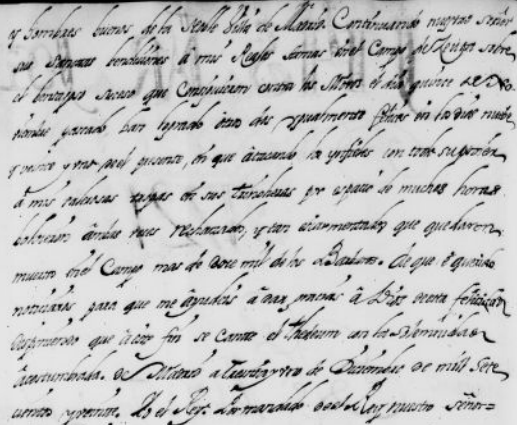 y hombres buenos de la Noble Villa de Madrid. Continuando nuestro Señor
sus Santas bendiciones a mis Reales Armas en el Campo de Zeuta sobre
el dichoso suceso que Consiguieron contra los Moros el dia quinze de No
viembre pasado, han logrado otros dos igualmente felices en los dias nueve
y veinte y uno del presente, en que atacando los ynfieles con todo su poder
a mis valerosas tropas en sus trincheras por espacio de muchas horas
bolvieron ambas veces rechazados, y tan escarmentados que quedaron
muertos en el Campo mas de doce mil de los Barbaros. de que e querido
noticiaros para que me ayudeis a dar gracias a Dios
disponiendo que a este fin se cante el thedeum con la solemnidad
acostumbrada. de Madrid a treinta y uno de Diziembre de mill Sete
cientos y veinte. Yo el Rey. Por mandado del Rey nuestro señor=